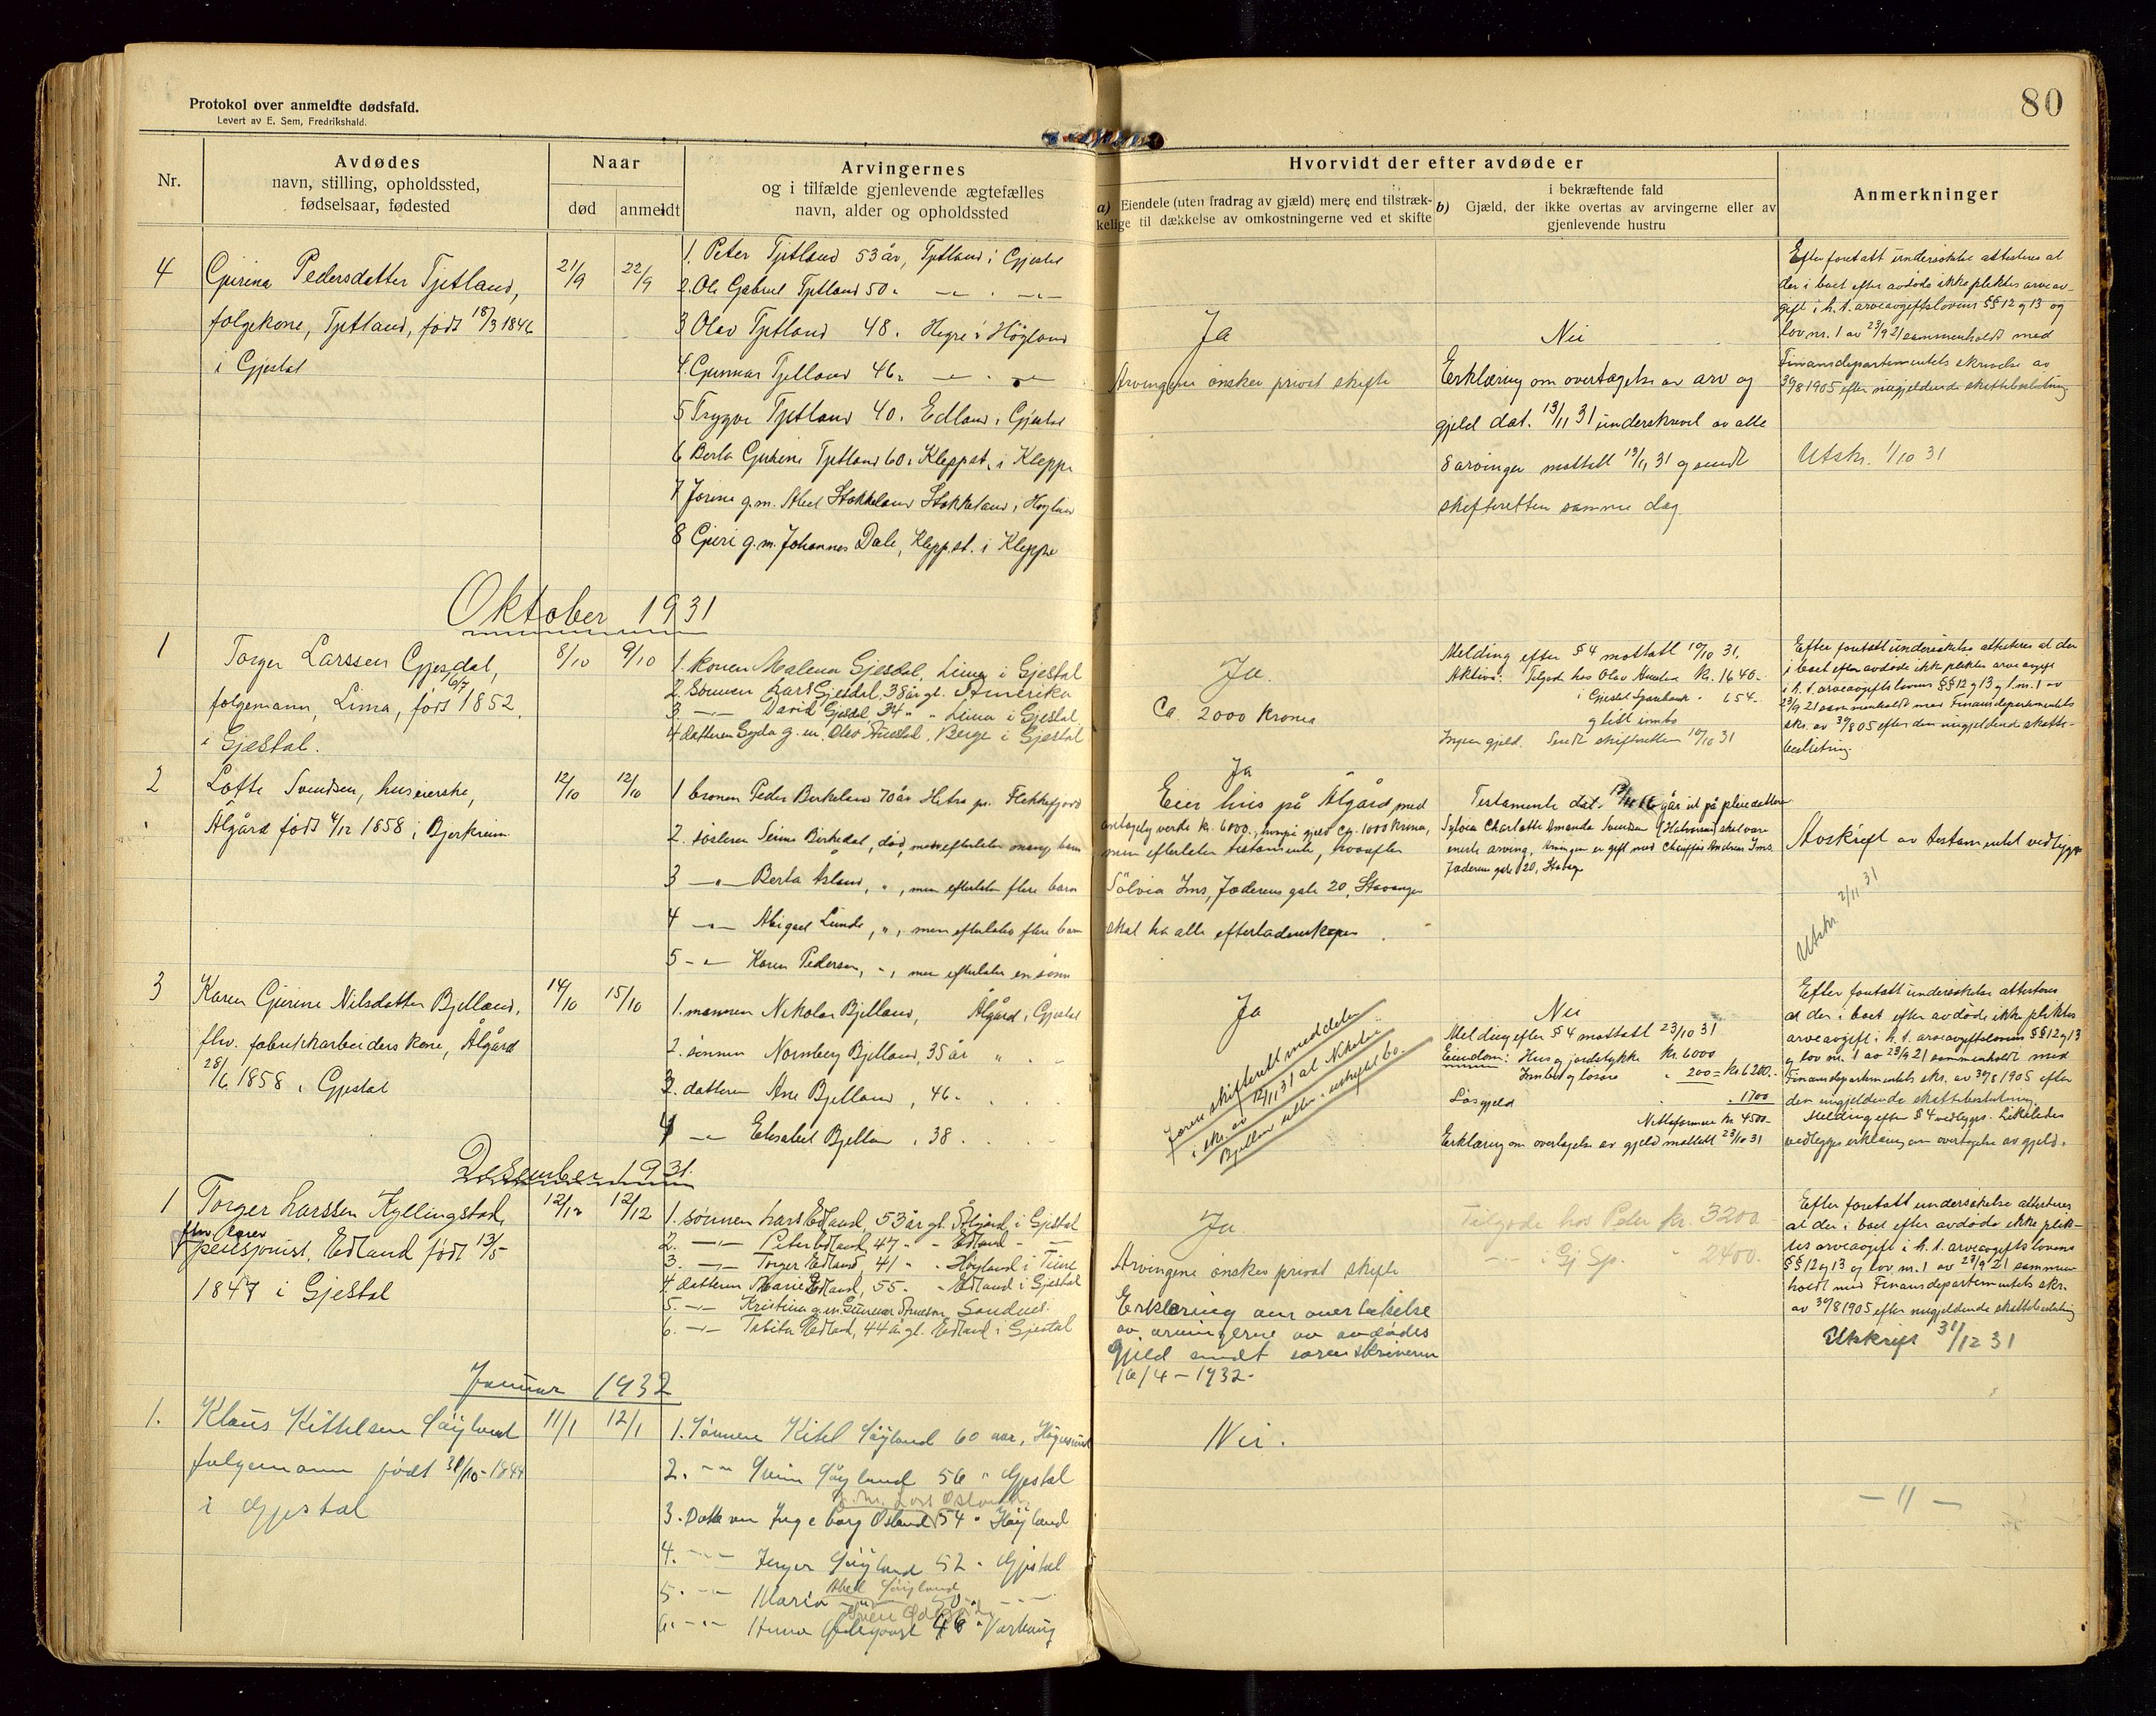 80
Protokol over anmeldte dødsfald.
Levert av E. Sem, Fredrikshald.
Nr.
Avdødes
navn, stilling, opholdssted,
fødselsaar, fødested
Naar
død
anmeldt
Arvingernes
og i tilfælde gjenlevende ægtefælles
navn, alder og opholdssted
Hvorvidt der efter avdøde er
a) Eiendele (uten fradrag av gjæld) mere end tilstræk-
kelige til dækkelse av omkostningerne ved et skifte
i bekræftende fald
b) Gjæld, der ikke overtas av arvingerne eller av
gjenlevende hustru
Anmerkninger
4
Gurina Pedersdatter Tjetland,
folgekone, Tjetland, født 18/3 1846
i Gjestal
21/9
22/9
1. Peter Tjetland 53 år, Tjetland i Gjestal
2. Ole Gabriel Tjetland 50 " — " . — " —
3 Olav Tjetland 48 . Hegre i Höyland
4. Gunnar Tjetland 46 " — " . — " —
5 Trygve Tjetland 40 . Edland i Gjestal
6 Berta Gurine Tjetland 60 " Klepp st. i Kleppe
7 Jorine g.m. Abel Stokkeland Stokkeland i Høyland
8 Gjeri g.m. Johannes Dale, Klepp st. i Kleppe
Ja
Arvingene ønsker privat skifte
Nei
Erklæring om overtagelse av arv og
gjeld dat. 13/11 31 underskrevet av alle
8 arvinger mottatt 13/11 31 og sendt
skifteretten samme dag.
Efter foretatt undersøkelse attesteres at
der i boet efter avdøde ikke pliktes arveav-
gift i h. t. arveavgiftslovens §§ 12 og 13 og
lov nr. 1 av 23/9 21 sammenholdt med
Finansdepartementets skrivelse av
30/8 1905 efter nugjeldende skattebeslutning
Utskr. 1/10 31
Oktober 1931
1
Torger Larssen Gjesdal,
folgemann, Lima, født 6/7 1852.
i Gjestal.
8/10
9/10
1. konen Malena Gjesdal, Lima i Gjestal
2. sønnen Lars Gjesdal, 38 år gl. Amerika
3. — " — David Gjesdal 34 " " Lima i Gjestal.
4 datteren Gyda g. m. Olav Auestad, Berge i Gjestal
Ja.
Ca. 2000 kroner
Melding efter § 4 mottatt 10/10 31.
Aktiva: Tilgode hos Olav Auestad Kr. 1640.-
i Gjestal Sparebank - 654.-
og litt innbo
Ingen gjeld. Sendt skifteretten 10/10 31
Efter foretatt undersøkelse attesteres at der
i boet efter avdøde ikke pliktes arveavgift
i h. t. arveavgiftslovens §§ 12 og 13 og l. nr. 1 av
23/9 21 sammenholdt med Finansdepartementets
skr. av 30/8 05 efter den nugjeldende skatte-
beslutning.
2
Lotte Svendsen, huseierske,
Ålgård født 4/12 1858 i Bjerkreim
12/10
12/10
1 broren Peder Birkeland 70 år Hitra pr. Flekkefjord
2. søsteren Serina Birkedal, død, men efterlater mange barn
3 — " — Berta Åsland, " , men efterlater flere barn
4 — " — Abigael Lunde, " , men efterlater flere barn
5 - " - Karen Pedersen, " , men efterlater en sønn
Ja
Eier hus på Ålgård med
antagelig verdi kr. 6000., hvorpå gjeld Ca. 1000 kroner,
men efterlater testamente, hvorefter
Sölvia Ims, Jæderens gate 20, Stavanger
skal ha alle efterladenskaper
Testamente dat. 13/11 16 går ut på pleiedatteren
Sylvia Charlotte Amanda Svendsen (Halvorsen) skal være
eneste arving. Arvingen er gift med Chauffør Andreas Ims
Jæderens gate 20, Stavgr
Avskrift av testamentet vedlegges
Utskr. 2/11 31
3
Karen Gurine Nilsdatter Bjelland,
fhv. fabrikkarbeiders kone, Ålgård
28/6 1858 i Gjestal
14/10
15/10
1. mannen Nikolai Bjelland, Ålgård i Gjestal
2. sønnen Normberg Bjelland, 35 år " . -
3. datteren Ane Bjelland, 46 " . .
4 — " — Elisabet Bjelland, 38 . . .
Ja
Sorenskifterett meddeler
i skr. av 12/11 31 at Nikolai
Bjelland sitter i uskiftet bo.
Nei
Melding efter § 4 mottatt 23/10 31
Eiendom: Hus og jordstykke kr. 6000
Innbo og løsøre " 200 = Kr. 6200.-
Løsgjeld . 1700
Nettoformue kr. 4500.-
Erklæring om overtagelse av gjeld mottatt 23/10 31
Efter foretatt undersøkelse attesteres
at der i boet efter avdøde ikke pliktes
arveavgift i h. t. arveavgiftslovens §§ 12 og 13
og lov nr. 1 av 23/9 21 sammenholdt med
Finansdepartementets skr. av 30/8 1905 efter
den nugjeldende skattebeslutning.
Melding efter § 4 vedlegges. Likeledes
vedlegges erklæring om overtagelse av gjeld.
Desember 1931.
1
Torger Larssen Kyllingstad,
fhv. Garver
pensjonist. Edland født 13/5
1847 i Gjestal
12/12
12/12
1. sønnen Lars Edland, 53 år gl. Ålgård i Gjestal
2. — " — Peter Edland, 47 " - Edland - " —
3. — " — Torger Edland, 41 " . Høyland i Time
4. datteren Marie Edland, 55 . - Edland i Gjestal
5. — " — Kristina g.m. Gunnar Arneson, Sandnes.
6. — " — Tabita Edland, 44 år gl. Edland i Gjestal
Ja
Arvingene ønsker privat skifte
Erklæring om overtakelse
av arvingerne av avdødes
gjeld sendt sorenskriveren
16/4 - 1932.
Tilgode hos Peter kr. 3200.
— " — i Gj Sp. " 2400.
Efter foretatt undersøkelse attesteres
at der i boet efter avdøde ikke plik-
tes arveavgift i h. t. arveavgiftslovens
§§ 12 og 13 og lov nr. 1 av 23/9 21 sammen-
holdt med Finansdepartementets skr.
av 30/8 1905 efter nugjeldende skattebeslutning
Utskrift 31/12 31
Januar 1932
1.
Klaus Kittelsen Søyland
folgemann født 31/10 - 1844
i Gjestal
11/1
12/1
1. Sønnen Kitel Søyland 60 aar, Haugesund
2. - " - Svein Søyland 56 " Gjestal
3. Datteren Ingeborg Osland 54 " Høyland
4. - " - Søyland 52 " Gjestal
5. - " - Maria 50 " - " -
6. - " - Anna Ødegaard 46 " Varhaug
Nei.
— " —